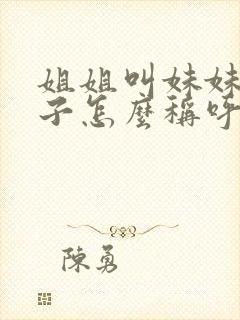 姐姐叫妹妹
子怎麼稱呼
陳勇